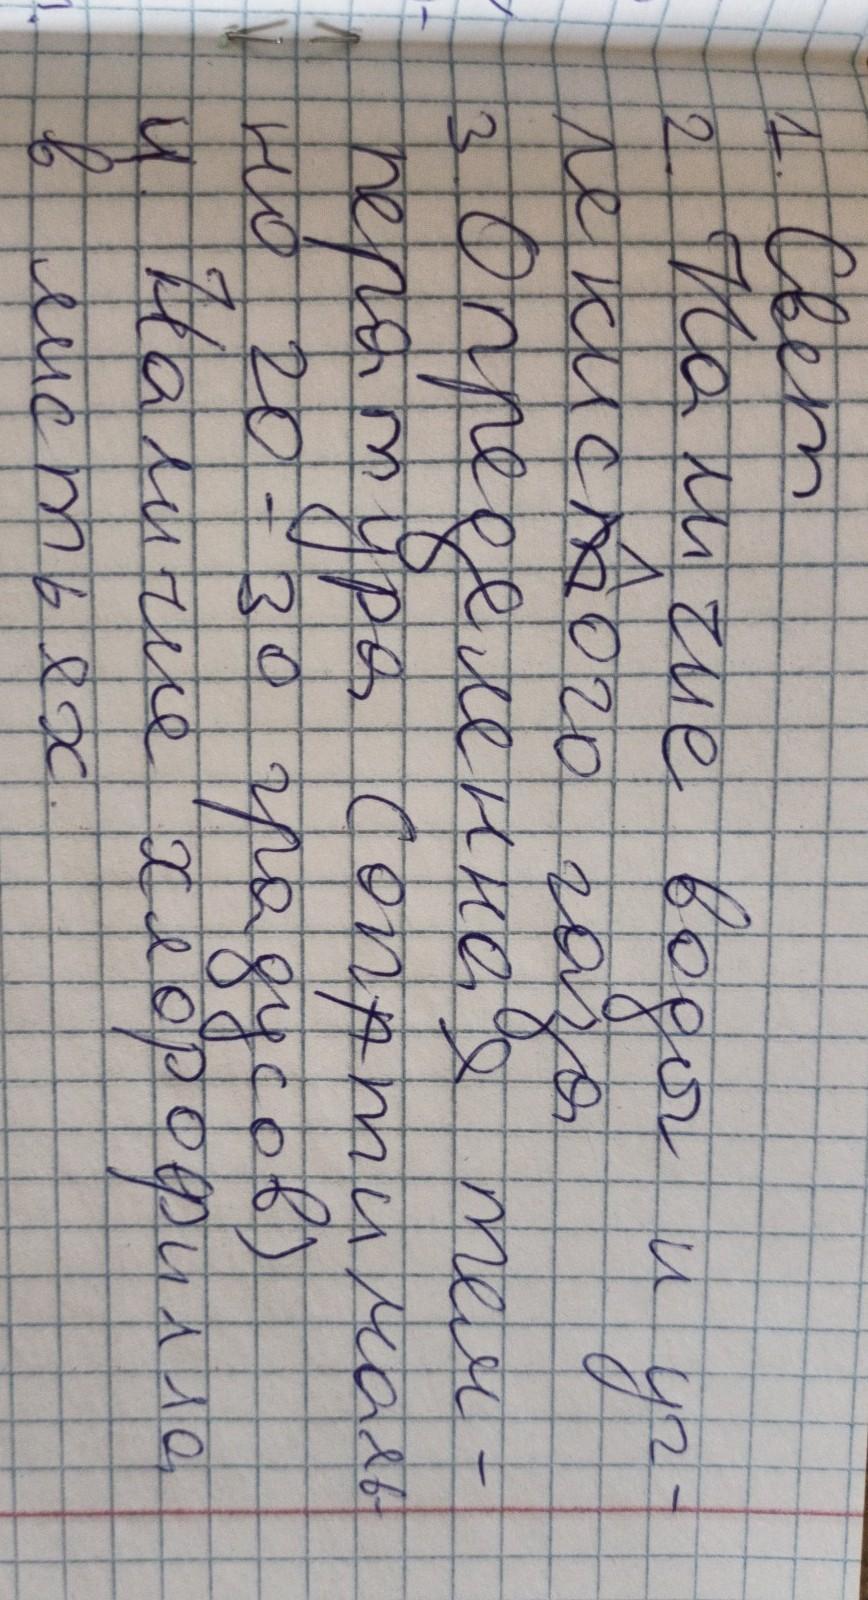 1. Свет
2. Наличие воды и уг-
лекислого газа
3. Определенная тем-
пература (оптималь-
но 20-30 градусов)
4. Наличие хлорофилла
в листьях.